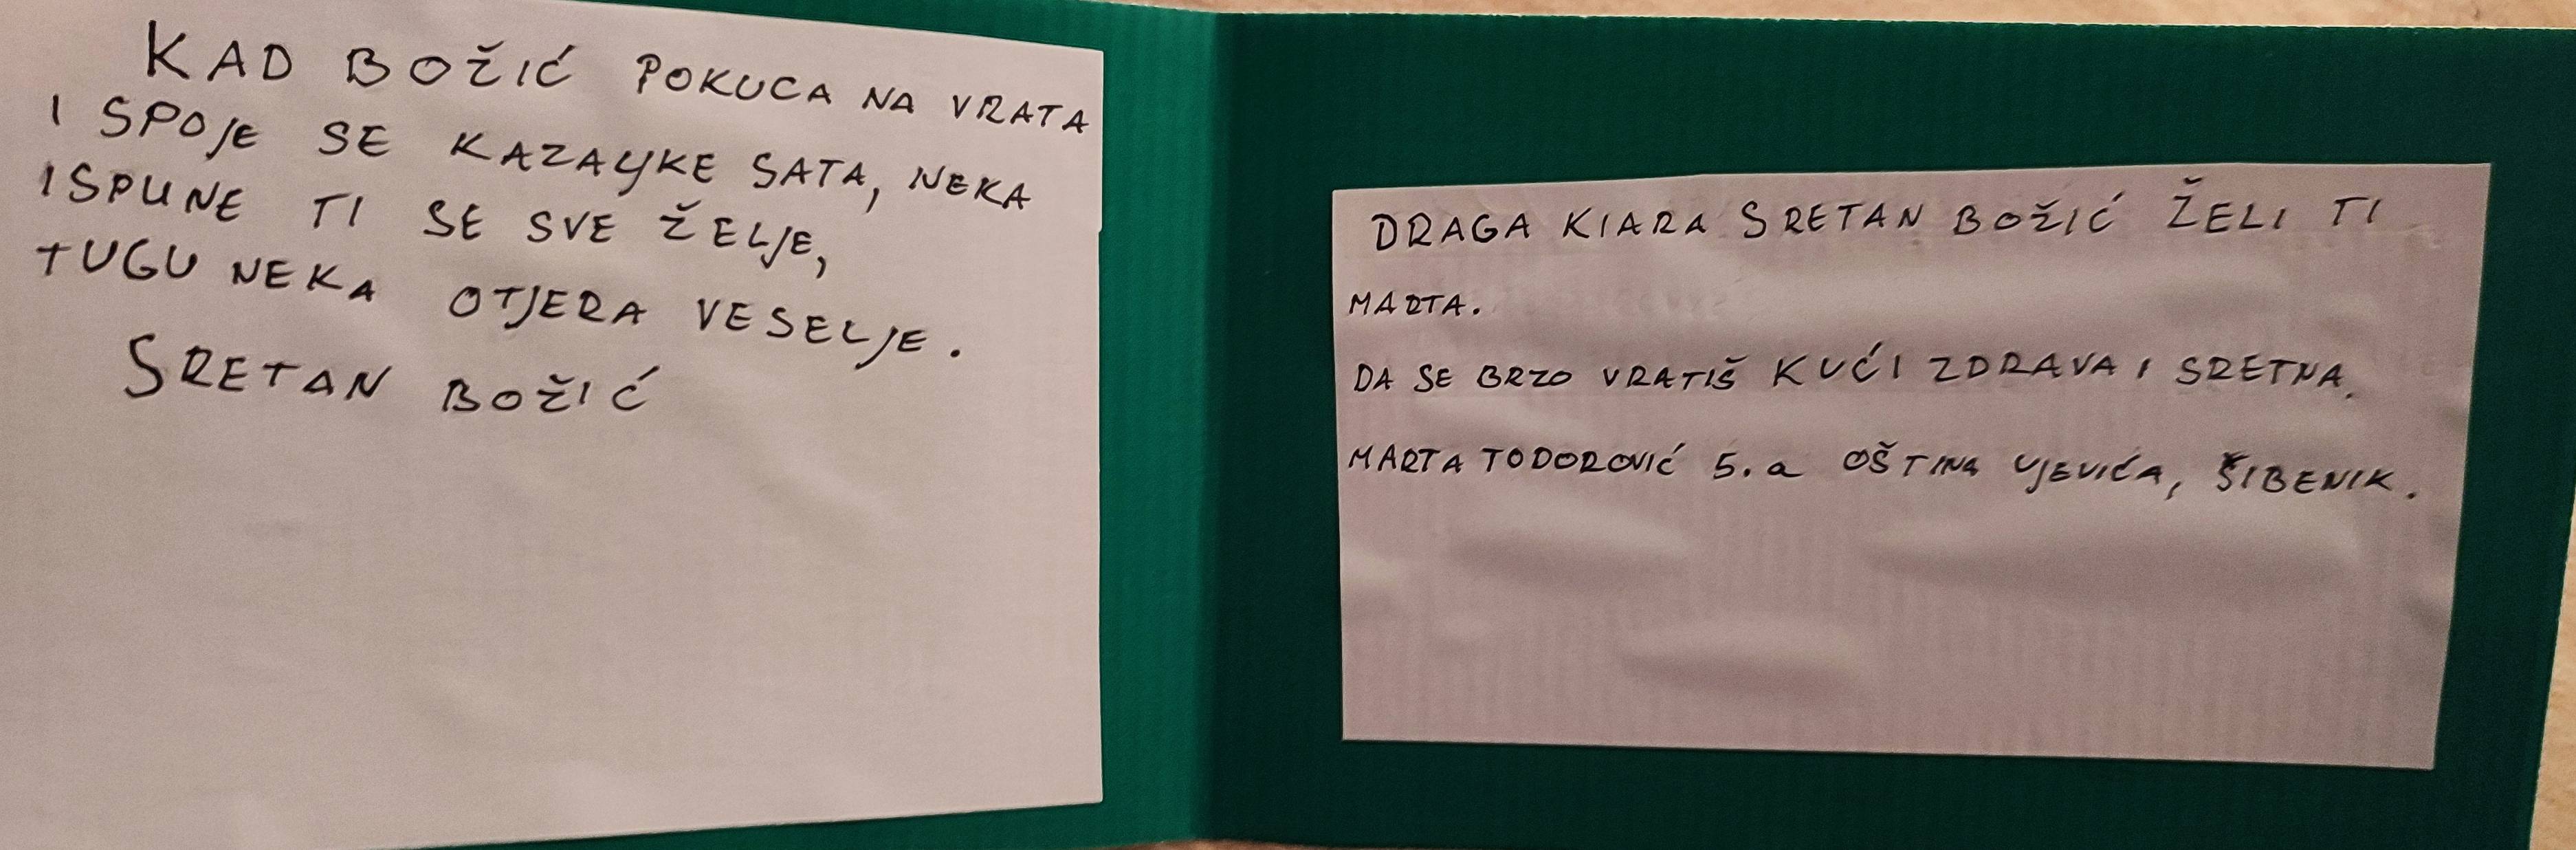 KAD BOŽIĆ POKUCA NA VRATA
I SPOJE SE KAZALJKE SATA, NEKA
ISPUNE TI SE SVE ŽELJE,
TUGU NEKA OTJERA VESELJE.
SRETAN BOŽIĆ
DRAGA KIARA SRETAN BOŽIĆ ŽELI TI
MARTA.
DA SE BRZO VRATIŠ KUĆI ZDRAVA I SRETNA.
MARTA TODOROVIĆ 5.a OŠ TINA UJEVIĆA, ŠIBENIK.